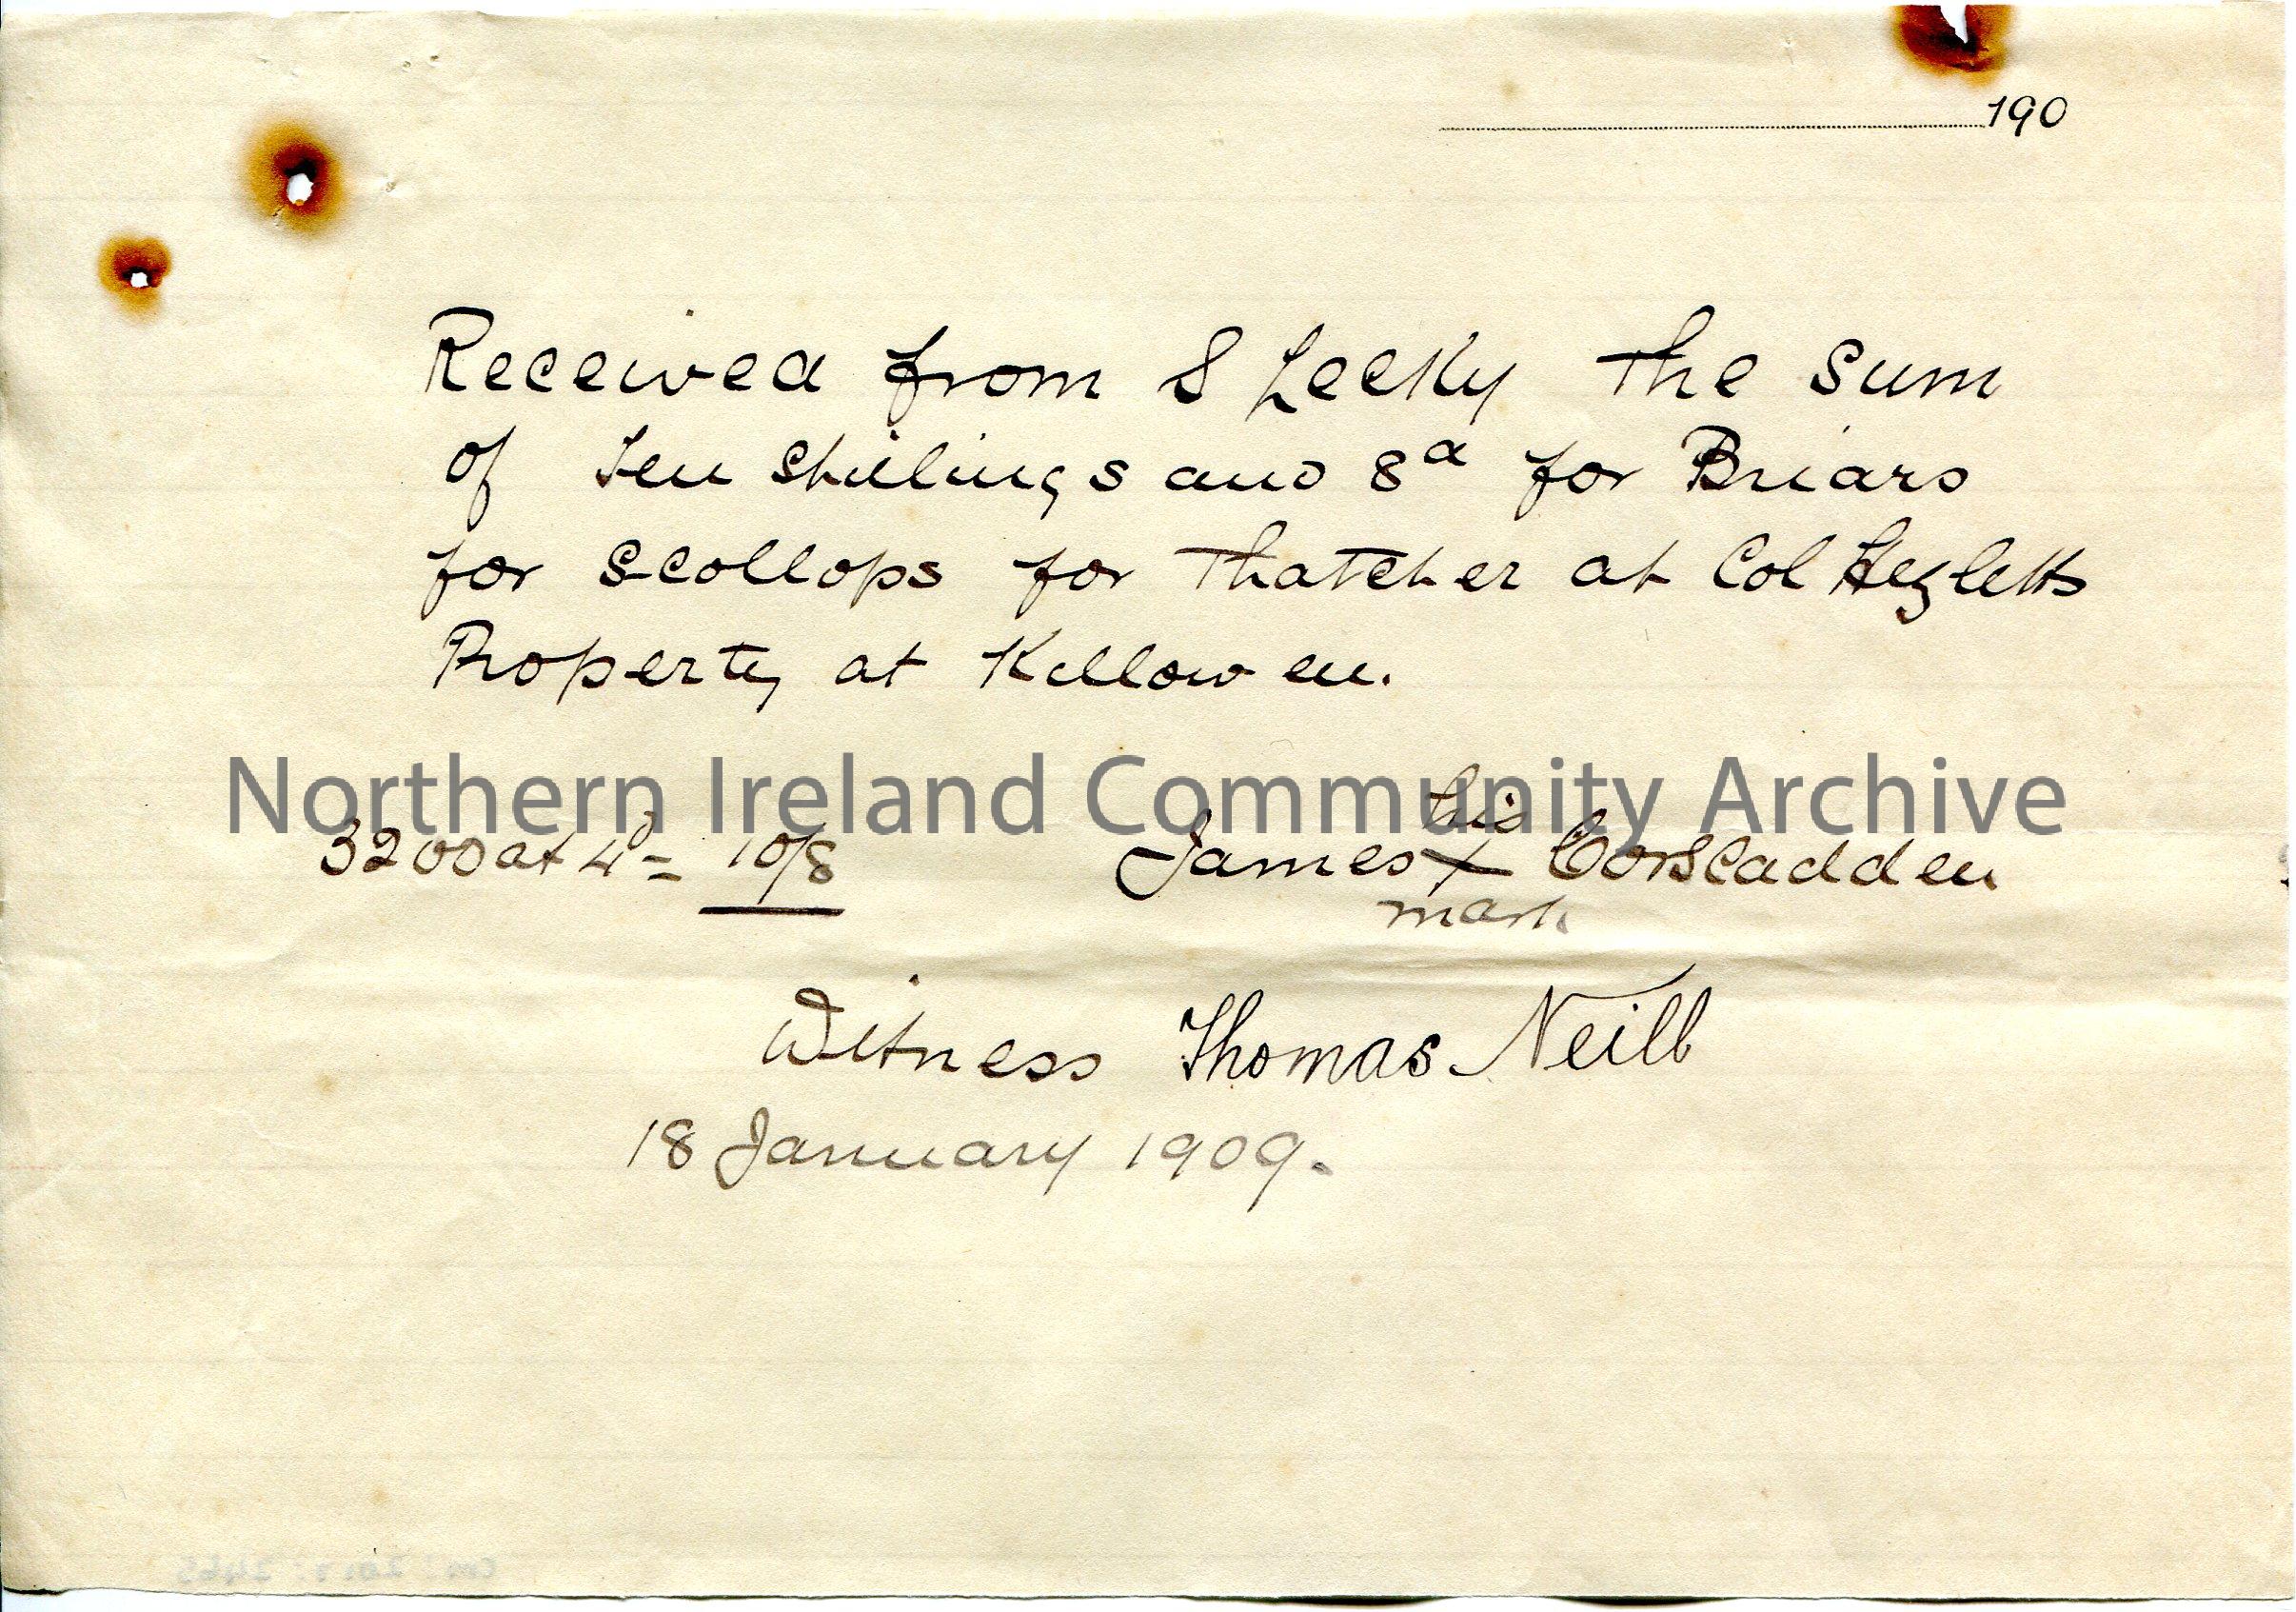 190
Received from S Lecky the Sum
of Ten Shillings and 8d for Briars
for Scollops for Thatcher at Col Hezletts
Property at Killowen.
Northern Ireland Community Archive
his
3200 at 4d = 10/8 James X Corscadden
mark
Witness Thomas Neill
18 January 1909.